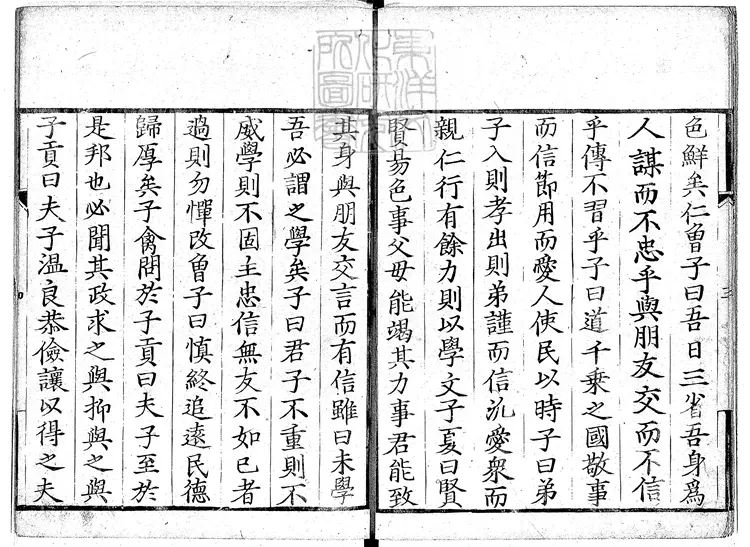 色鮮矣仁曾子曰吾日三省吾身爲
人謀而不忠乎與朋友交而不信
乎傳不習乎子曰道千乗之國敬事
而信節用而愛人使民以時子曰弟
子入則孝出則弟謹而信汎愛衆而
親仁行有餘力則以學文子夏曰賢
賢易色事父母能竭其力事君能致
其身與朋友交言而有信雖曰未學
吾必謂之學矣子曰君子不重則不
威學則不固主忠信無友不如已者
過則勿憚改曾子曰慎終追遠民德
歸厚矣子禽問於子貢曰夫子至於
是邦也必聞其政求之與抑與之與
子貢曰夫子温良恭儉讓以得之夫